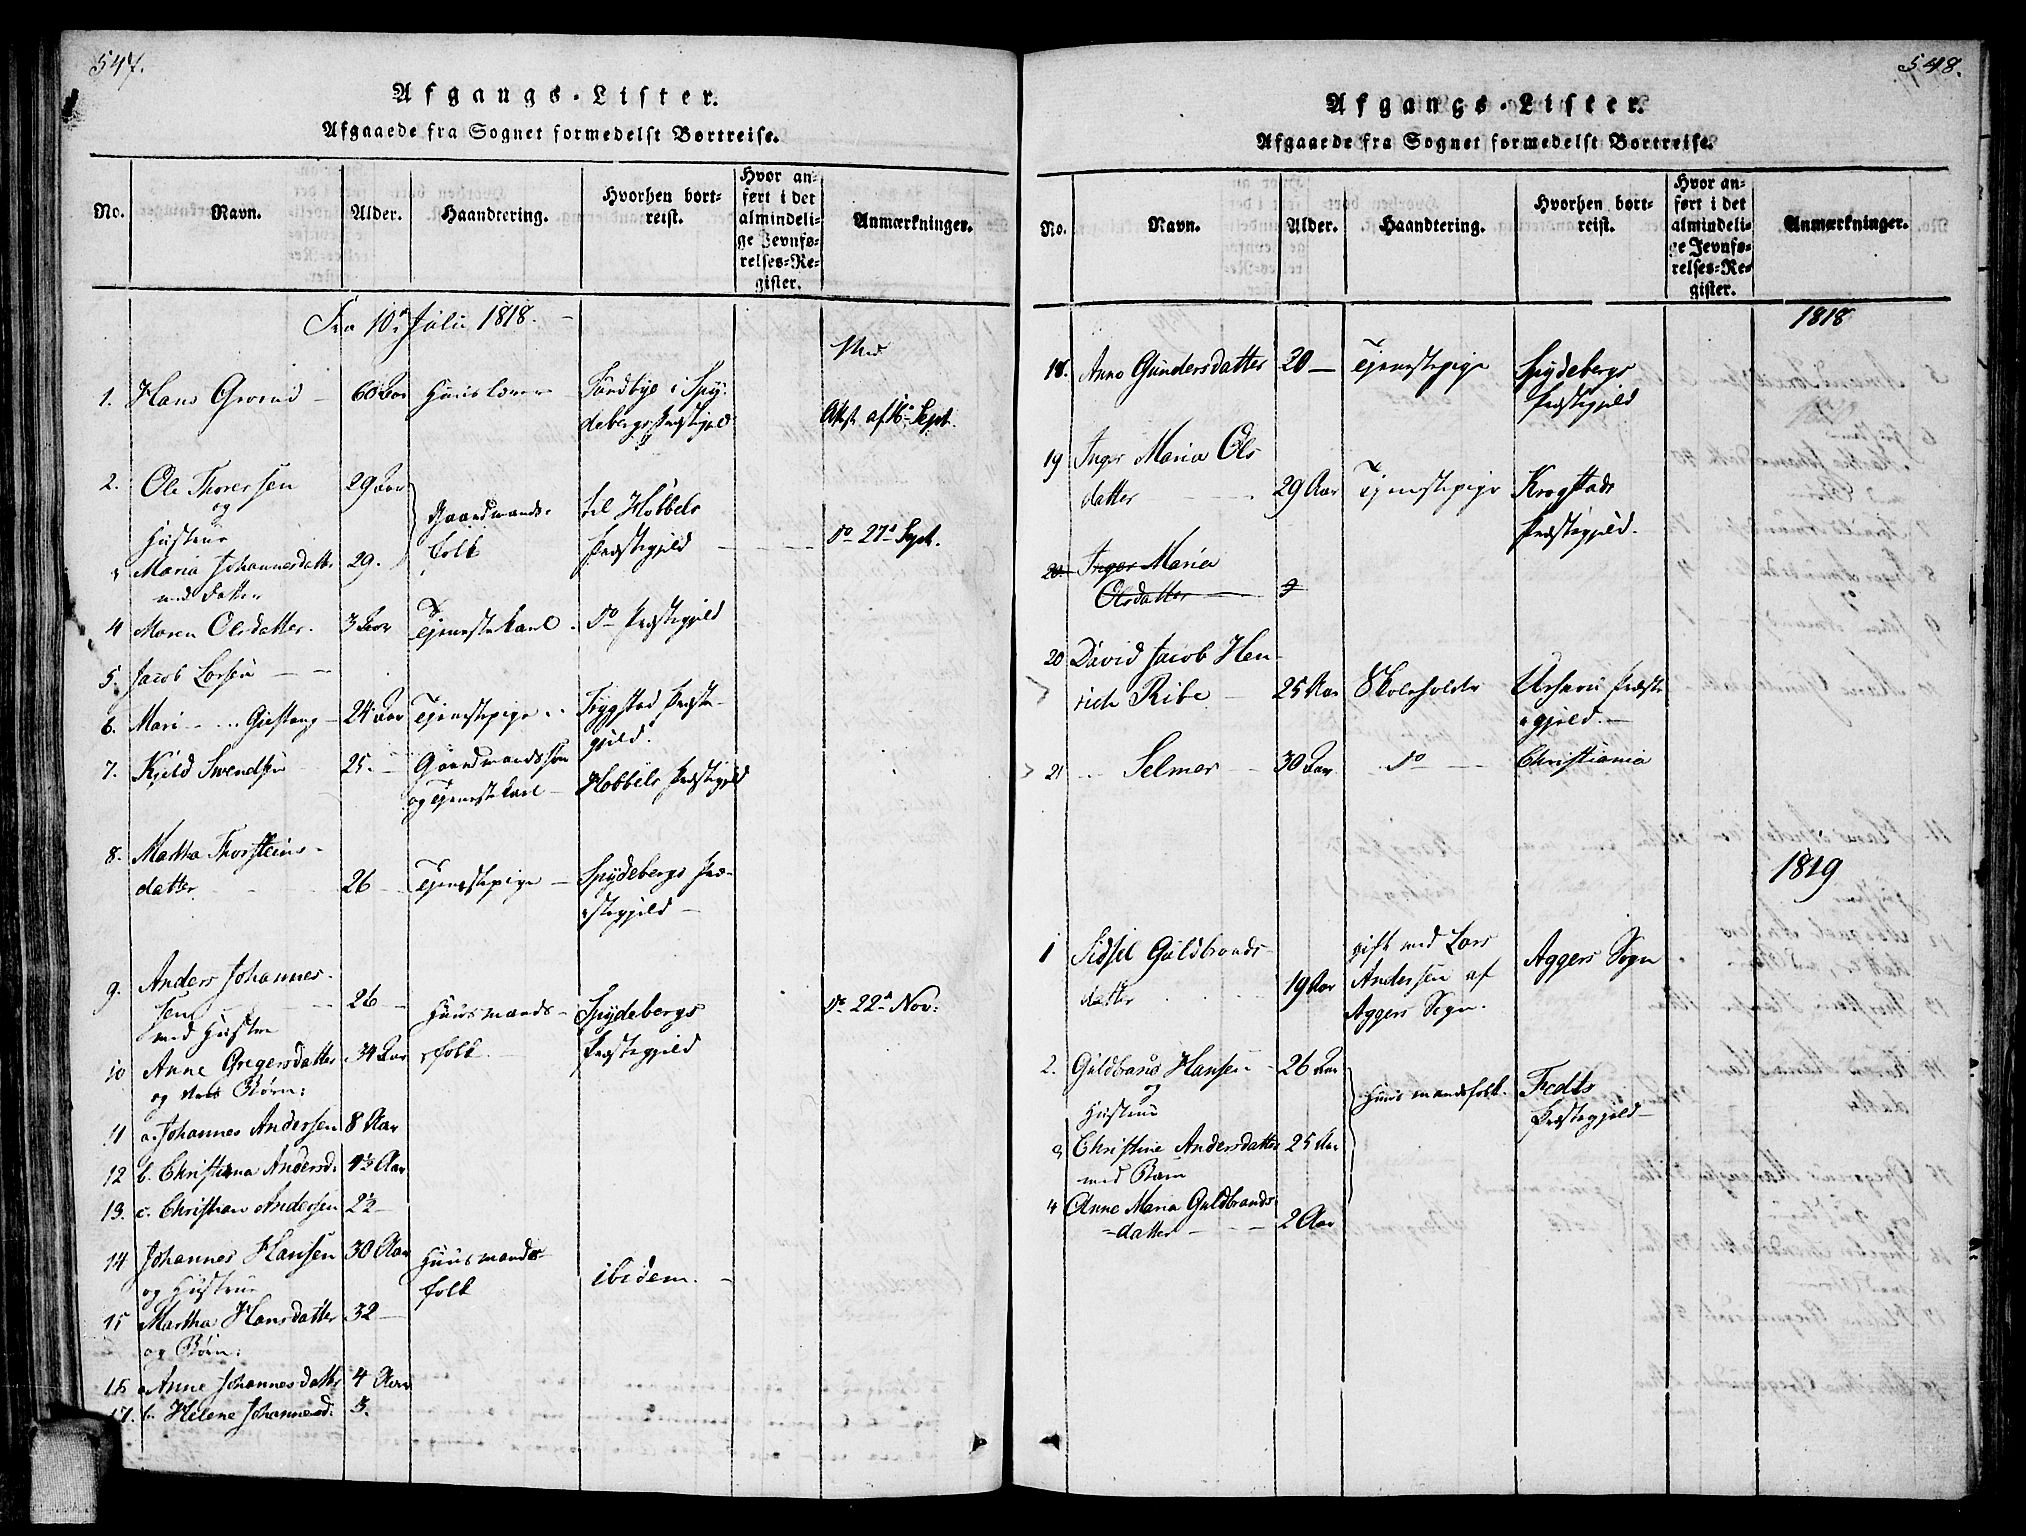 547.
Afgangs-Lister.
Afgaaede fra Sognet formedelst Bortreise.
No. Navn. Alder. Haandtering. Hvorhen bortreist. Hvor anført i det almindelige Jevnførelses-Register. Anmærkninger.
Fra 10d Julii 1818.
1. Hans Grorud 60 Aar Sundbye i Spydebergs Præstegield Attest af 16 Sept.
2. Ole Thorersen 29 Aar
og
Hustrue
Gaardmandsfolk til Hobbels Præstegjeld do 27d Sept.
3 Maria Johannesdatter 29.
med Datter
4 Maren Olsdatter. 3 Aar
5. Jacob Larsen Tjenestekarl do Præstegjeld
6. Mari Giestang 24 Aar Tjenestepige Tryggstad Præstegjeld.
7. Kjeld Swendsen 25. Gaardmandssøn og Tjenestekarl Hobbels Præstegjeld
8. Martha Thorsteinsdatter 26 Tjenestepige Spydebergs Præstegjeld
9. Anders Johannesen 26 Huusmandsfolk Spydebergs Præstegjeld do 22d Nov:
med Hustrue
10 Anne Gregersdatter 34 Aar
og Børn:
11 a. Johannes Andersen 8 Aar
12 b. Christiana Andersd. 4½ Aar
13. c. Christian Andersen 2½
14 Johannes Hansen 30 Aar Huusmandsfolk ibidem.
og Hustrue
15 Martha Hansdatter 32
og Børn:
16 a Anne Johannesdatter 4 Aar
17. b. Helene Johannesd. 3.
548.
Afgangs-Lister.
Afgaaede fra Sognet formedelst Bortreise.
No. Navn. Alder. Haandtering. Hvorhen bortreist. Hvor anført i det almindelige Jevnførelses-Register. Anmærkninger.
1818
18. Anne Gundersdatter 20 Tjenestepige Spydebergs Præstegjeld
19 Inger Maria Olsdatter 29 Aar Tjenestepige Krogstads Præstegjeld.
20. Inger Maria
Olsdatter
20 David Jacob Henrich Ribe 25 Aar Skoleholder Præstegjeld.
21 Selmer 30 Aar do Christiania
1819
1 Sidsel Guldbrandsdatter 19 Aar gift med Lars Andersen af Aggers Sogn. Aggers Sogn
2. Guldbrand Hansen 26 Aar
og
Hustrue
Huusmandsfolk. Tredts Præstegjeld
3 Christine Andersdatter 25 Aar
med Barn
4 Anne Maria Guldbrandsdatter 2 Aar